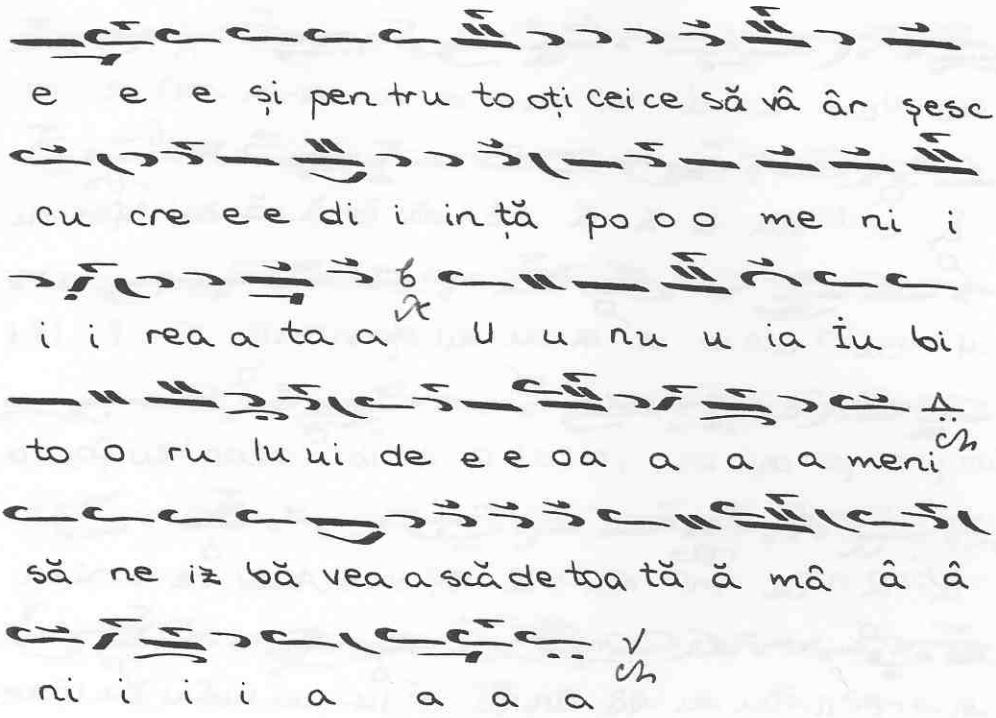 e e e și pen tru to oți cei ce să vâ âr șesc
cu cre e e di i in ță po o o me ni i
i i rea a ta a U u nu u ia Iu bi
to o ru lu ui de e e o a a a a meni
să ne iz bă vea a scă de toa tă ă mâ â â
ni i i i a a a a